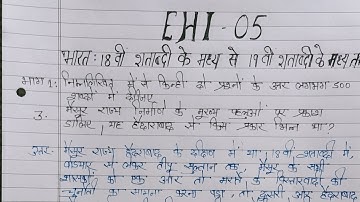 EHI-05
भारत: 18वीं शताब्दी के मध्य से 19वीं शताब्दी के मध्य तक
भाग 1: निम्नलिखित में से किन्हीं दो प्रश्नों के उत्तर लगभग 500
शब्दों में दीजिए
3. मैसूर राज्य निर्माण के मुख्य पहलुओं पर प्रकाश
डालिए, यह हैदराबाद से किस प्रकार भिन्न था?
उत्तर- मैसूर राज्य हैदराबाद के दक्षिण में था, 18वीं शताब्दी में,
वोडयार से लेकर टीपू सुल्तान तक मैसूर के सभी
शासकों को एक ओर तो मराठों के विस्तारवाद की
चुनौती का सामना करना पड़ा, तो दूसरी ओर हैदराबाद